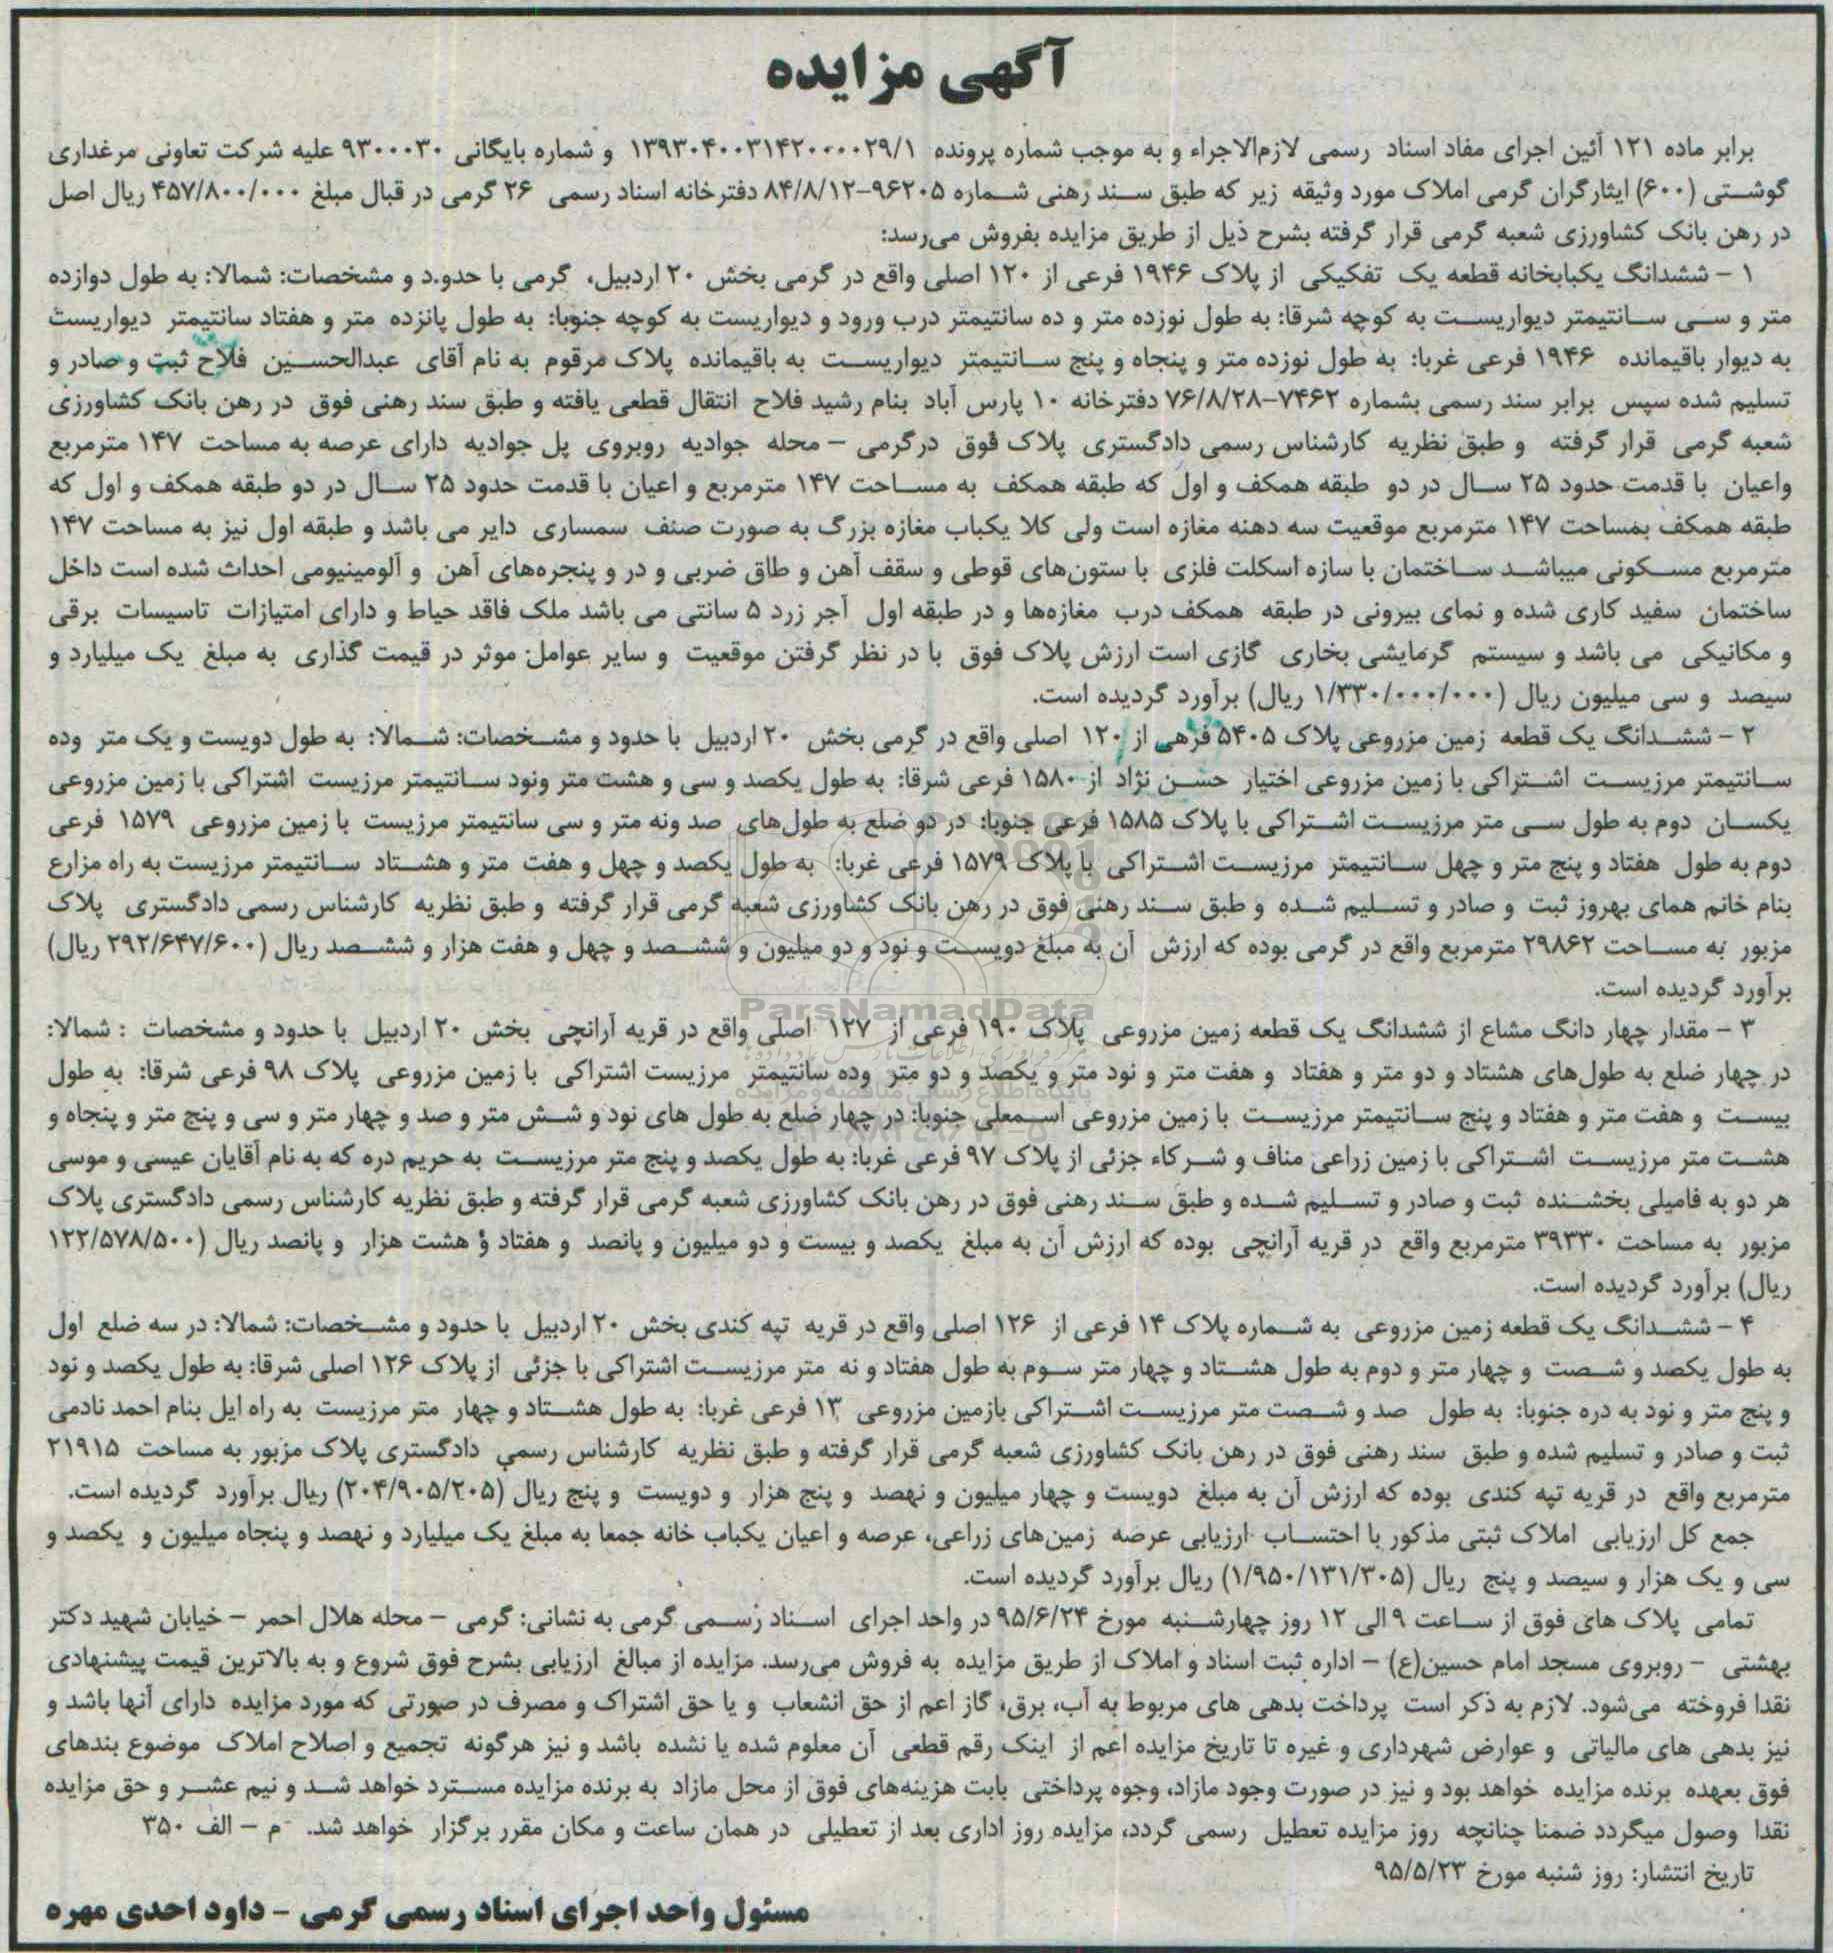 آگهی مزایده
برابر ماده ۱۲۱ آئین اجرای مفاد اسناد رسمی لازم‌الاجراء و به موجب شماره پرونده ۱۳۹۳۰۴۰۰۳۱۴۲۰۰۰۰۲۹/۱ و شماره بایگانی ۹۳۰۰۰۳۰ علیه شرکت تعاونی مرغداری
گوشتی (۶۰۰) ایثارگران گرمی املاک مورد وثیقه زیر که طبق سند رهنی شماره ۹۶۲۰۵-۸۴/۸/۱۲ دفترخانه اسناد رسمی ۲۶ گرمی در قبال مبلغ ۴۵۷/۸۰۰/۰۰۰ ریال اصل
در رهن بانک کشاورزی شعبه گرمی قرار گرفته بشرح ذیل از طریق مزایده بفروش می‌رسد:
۱ - ششدانگ یکبابخانه قطعه یک تفکیکی از پلاک ۱۹۴۶ فرعی از ۱۲۰ اصلی واقع در گرمی بخش ۲۰ اردبیل، گرمی با حدود و مشخصات: شمالا: به طول دوازده
متر و سی سانتیمتر دیواریست به کوچه شرقا: به طول نوزده متر و ده سانتیمتر درب ورود و دیواریست به کوچه جنوبا: به طول پانزده متر و هفتاد سانتیمتر دیواریست
به دیوار باقیمانده ۱۹۴۶ فرعی غربا: به طول نوزده متر و پنجاه و پنج سانتیمتر دیواریست به باقیمانده پلاک مرقوم به نام آقای عبدالحسین فلاح ثبت و صادر و
تسلیم شده سپس برابر سند رسمی بشماره ۷۴۶۲-۷۶/۸/۲۸ دفترخانه ۱۰ پارس آباد بنام رشید فلاح انتقال قطعی یافته و طبق سند رهنی فوق در رهن بانک کشاورزی
شعبه گرمی قرار گرفته و طبق نظریه کارشناس رسمی دادگستری پلاک فوق درگرمی - محله جوادیه روبروی پل جوادیه دارای عرصه به مساحت ۱۴۷ مترمربع
واعیان با قدمت حدود ۲۵ سال در دو طبقه همکف و اول که طبقه همکف به مساحت ۱۴۷ مترمربع و اعیان با قدمت حدود ۲۵ سال در دو طبقه همکف و اول که
طبقه همکف بمساحت ۱۴۷ مترمربع موقعیت سه دهنه مغازه است ولی کلا یکباب مغازه بزرگ به صورت صنف سمساری دایر می باشد و طبقه اول نیز به مساحت ۱۴۷
مترمربع مسکونی میباشد ساختمان با سازه اسکلت فلزی با ستون‌های قوطی و سقف آهن و طاق ضربی و در و پنجره‌های آهن و آلومینیومی احداث شده است داخل
ساختمان سفید کاری شده و نمای بیرونی در طبقه همکف درب مغازه‌ها و در طبقه اول آجر زرد ۵ سانتی می باشد ملک فاقد حیاط و دارای امتیازات تاسیسات برقی
و مکانیکی می باشد و سیستم گرمایشی بخاری گازی است ارزش پلاک فوق با در نظر گرفتن موقعیت و سایر عوامل موثر در قیمت گذاری به مبلغ یک میلیارد و
سیصد و سی میلیون ریال (۱/۳۳۰/۰۰۰/۰۰۰ ریال) برآورد گردیده است.
۲ - ششدانگ یک قطعه زمین مزروعی پلاک ۵۴۰۵ فرهی از ۱۲۰ اصلی واقع در گرمی بخش ۲۰ اردبیل با حدود و مشخصات: شمالا: به طول دویست و یک متر وده
سانتیمتر مرزیست اشتراکی با زمین مزروعی اختیار حسن نژاد از ۱۵۸۰ فرعی شرقا: به طول یکصد و سی و هشت متر ونود سانتیمتر مرزیست اشتراکی با زمین مزروعی
یکسان دوم به طول سی متر مرزیست اشتراکی با پلاک ۱۵۸۵ فرعی جنوبا: در دو ضلع به طول‌های صد ونه متر و سی سانتیمتر مرزیست با زمین مزروعی ۱۵۷۹ فرعی
دوم به طول هفتاد و پنج متر و چهل سانتیمتر مرزیست اشتراکی با پلاک ۱۵۷۹ فرعی غربا: به طول یکصد و چهل و هفت متر و هشتاد سانتیمتر مرزیست به راه مزارع
بنام خانم همای بهروز ثبت و صادر و تسلیم شده و طبق سند رهنی فوق در رهن بانک کشاورزی شعبه گرمی قرار گرفته و طبق نظریه کارشناس رسمی دادگستری پلاک
مزبور به مساحت ۲۹۸۶۲ مترمربع واقع در گرمی بوده که ارزش آن به مبلغ دویست و نود و دو میلیون و ششصد و چهل و هفت هزار و ششصد ریال (۲۹۲/۶۴۷/۶۰۰ ریال)
برآورد گردیده است.
۳ - مقدار چهار دانگ مشاع از ششدانگ یک قطعه زمین مزروعی پلاک ۱۹۰ فرعی از ۱۲۷ اصلی واقع در قریه آرانچی بخش ۲۰ اردبیل با حدود و مشخصات : شمالا:
در چهار ضلع به طول‌های هشتاد و دو متر و هفتاد و هفت متر و نود متر و یکصد و دو متر وده سانتیمتر مرزیست اشتراکی با زمین مزروعی پلاک ۹۸ فرعی شرقا: به طول
بیست و هفت متر و هفتاد و پنج سانتیمتر مرزیست با زمین مزروعی اسمعلی جنوبا: در چهار ضلع به طول های نود و شش متر و صد و چهار متر و سی و پنج متر و پنجاه و
هشت متر مرزیست اشتراکی با زمین زراعی مناف و شرکاء جزئی از پلاک ۹۷ فرعی غربا: به طول یکصد و پنج متر مرزیست به حریم دره که به نام آقایان عیسی و موسی
هر دو به فامیلی بخشنده ثبت و صادر و تسلیم شده و طبق سند رهنی فوق در رهن بانک کشاورزی شعبه گرمی قرار گرفته و طبق نظریه کارشناس رسمی دادگستری پلاک
مزبور به مساحت ۳۹۳۳۰ مترمربع واقع در قریه آرانچی بوده که ارزش آن به مبلغ یکصد و بیست و دو میلیون و پانصد و هفتاد و هشت هزار و پانصد ریال (۱۲۲/۵۷۸/۵۰۰
ریال) برآورد گردیده است.
۴ - ششدانگ یک قطعه زمین مزروعی به شماره پلاک ۱۴ فرعی از ۱۲۶ اصلی واقع در قریه تپه کندی بخش ۲۰ اردبیل با حدود و مشخصات: شمالا: در سه ضلع اول
به طول یکصد و شصت و چهار متر و دوم به طول هشتاد و چهار متر سوم به طول هفتاد و نه متر مرزیست اشتراکی با جزئی از پلاک ۱۲۶ اصلی شرقا: به طول یکصد و نود
و پنج متر و نود به دره جنوبا: به طول صد و شصت متر مرزیست اشتراکی بازمین مزروعی ۱۳ فرعی غربا: به طول هشتاد و چهار متر مرزیست به راه ایل بنام احمد نادمی
ثبت و صادر و تسلیم شده و طبق سند رهنی فوق در رهن بانک کشاورزی شعبه گرمی قرار گرفته و طبق نظریه کارشناس رسمی دادگستری پلاک مزبور به مساحت ۲۱۹۱۵
مترمربع واقع در قریه تپه کندی بوده که ارزش آن به مبلغ دویست و چهار میلیون و نهصد و پنج هزار و دویست و پنج ریال (۲۰۴/۹۰۵/۲۰۵) ریال برآورد گردیده است.
جمع کل ارزیابی املاک ثبتی مذکور با احتساب ارزیابی عرصه زمین‌های زراعی، عرصه و اعیان یکباب خانه جمعا به مبلغ یک میلیارد و نهصد و پنجاه میلیون و یکصد و
سی و یک هزار و سیصد و پنج ریال (۱/۹۵۰/۱۳۱/۳۰۵) ریال برآورد گردیده است.
تمامی پلاک های فوق از ساعت ۹ الی ۱۲ روز چهارشنبه مورخ ۹۵/۶/۲۴ در واحد اجرای اسناد رسمی گرمی به نشانی: گرمی - محله هلال احمر - خیابان شهید دکتر
بهشتی - روبروی مسجد امام حسین(ع) - اداره ثبت اسناد و املاک از طریق مزایده به فروش می‌رسد. مزایده از مبالغ ارزیابی بشرح فوق شروع و به بالاترین قیمت پیشنهادی
نقدا فروخته می‌شود. لازم به ذکر است پرداخت بدهی های مربوط به آب، برق، گاز اعم از حق انشعاب و یا حق اشتراک و مصرف در صورتی که مورد مزایده دارای آنها باشد و
نیز بدهی های مالیاتی و عوارض شهرداری و غیره تا تاریخ مزایده اعم از اینک رقم قطعی آن معلوم شده یا نشده باشد و نیز هرگونه تجمیع و اصلاح املاک موضوع بندهای
فوق بعهده برنده مزایده خواهد بود و نیز در صورت وجود مازاد، وجوه پرداختی بابت هزینه‌های فوق از محل مازاد به برنده مزایده مسترد خواهد شد و نیم عشر و حق مزایده
نقدا وصول میگردد ضمنا چنانچه روز مزایده تعطیل رسمی گردد، مزایده روز اداری بعد از تعطیلی در همان ساعت و مکان مقرر برگزار خواهد شد. م - الف ۳۵۰
تاریخ انتشار: روز شنبه مورخ ۹۵/۵/۲۳
مسئول واحد اجرای اسناد رسمی گرمی - داود احدی مهره
ParsNamadData
پایگاه اطلاع رسانی مناقصه و مزایده